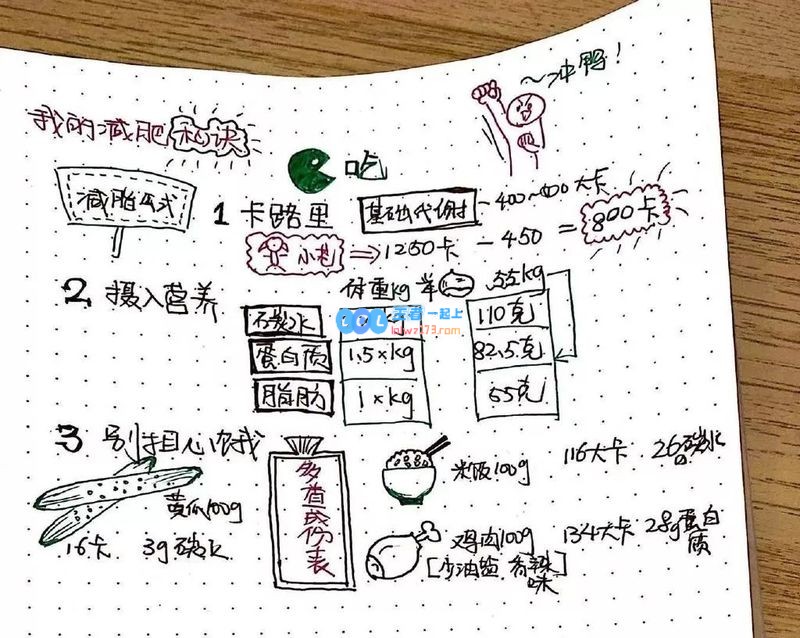 ~冲鸭！
我的减肥秘诀
吃
减脂公式
1 卡路里
基础代谢 - 400~500大卡
小赵 ⇒ 1250卡 - 450 = 800卡
2 摄入营养
体重kg
55kg
碳水
kg
110克
蛋白质
1.5×kg
82.5克
脂肪
1×kg
55克
王者一起上
lolwz173.com
3 别担心
多查成份表
黄瓜100g
16卡 3g碳水
米饭100g 116大卡 26g碳水
鸡肉100g 134大卡 28g蛋白质
[少油盐
味]